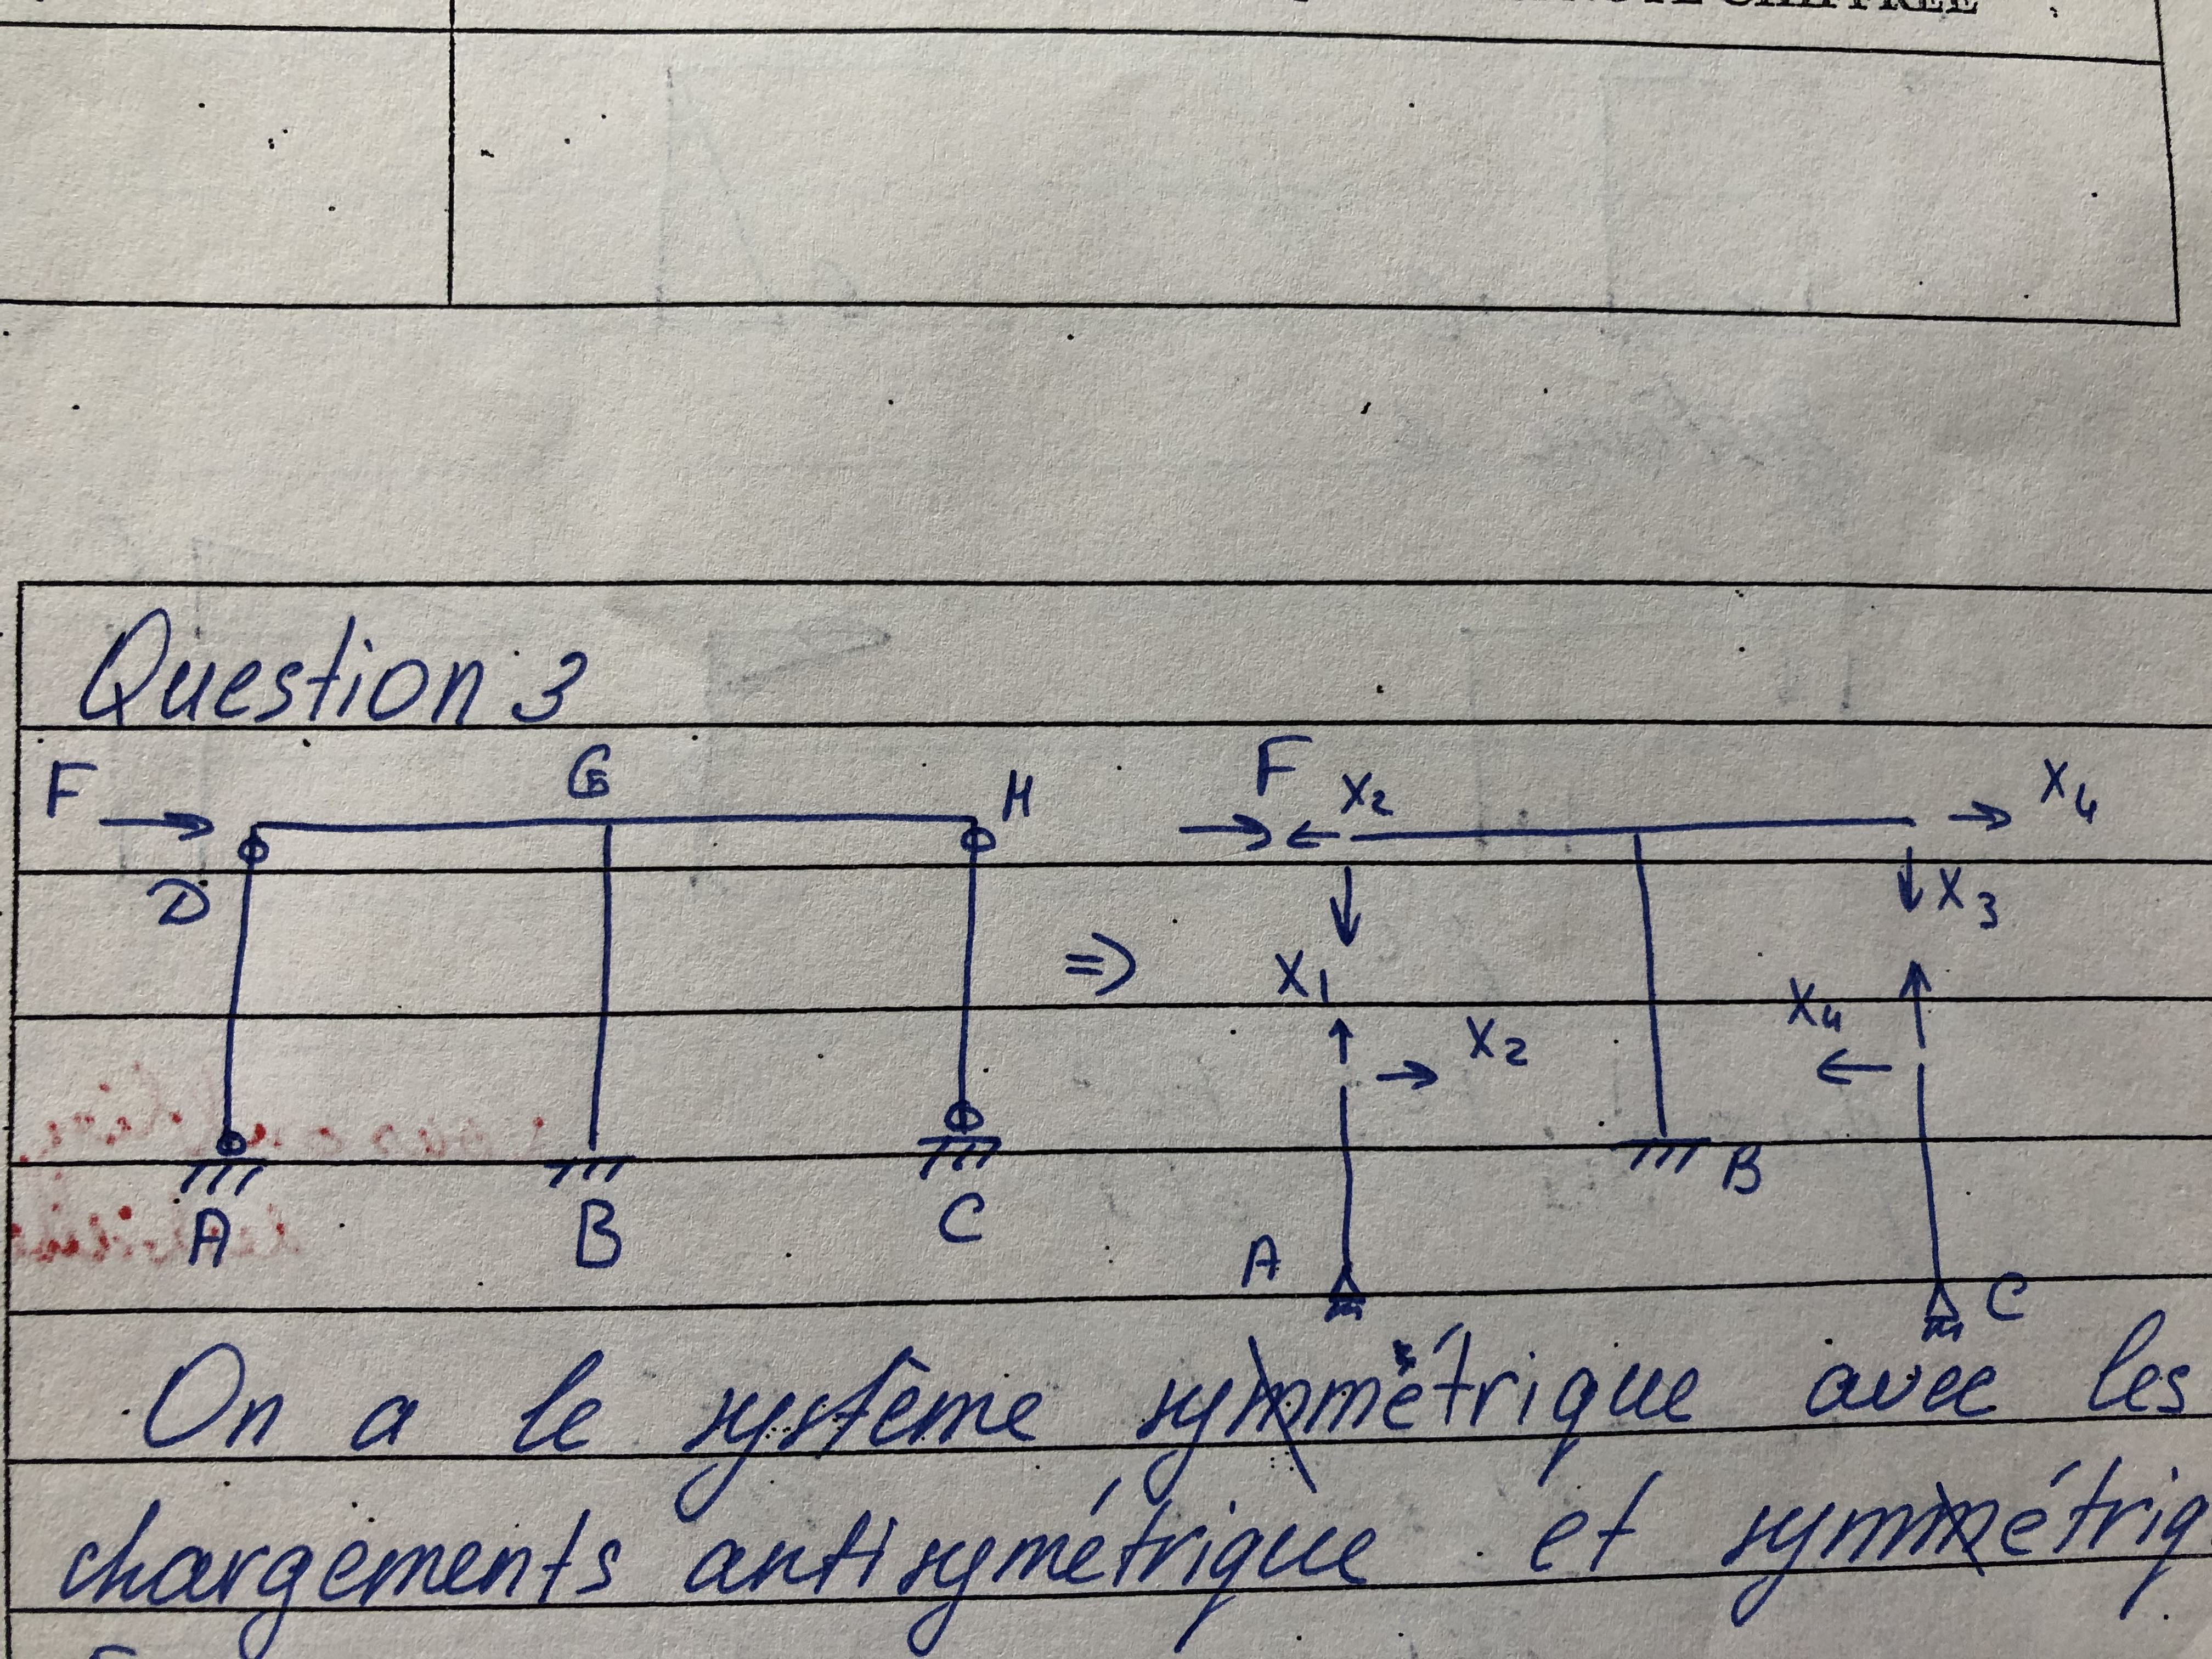 Question 3
F G H F X2 X4
D X3
X1 X4
X2
B
A B C A C
On a le système symétrique avec les
chargements antisymétrique et symétriq